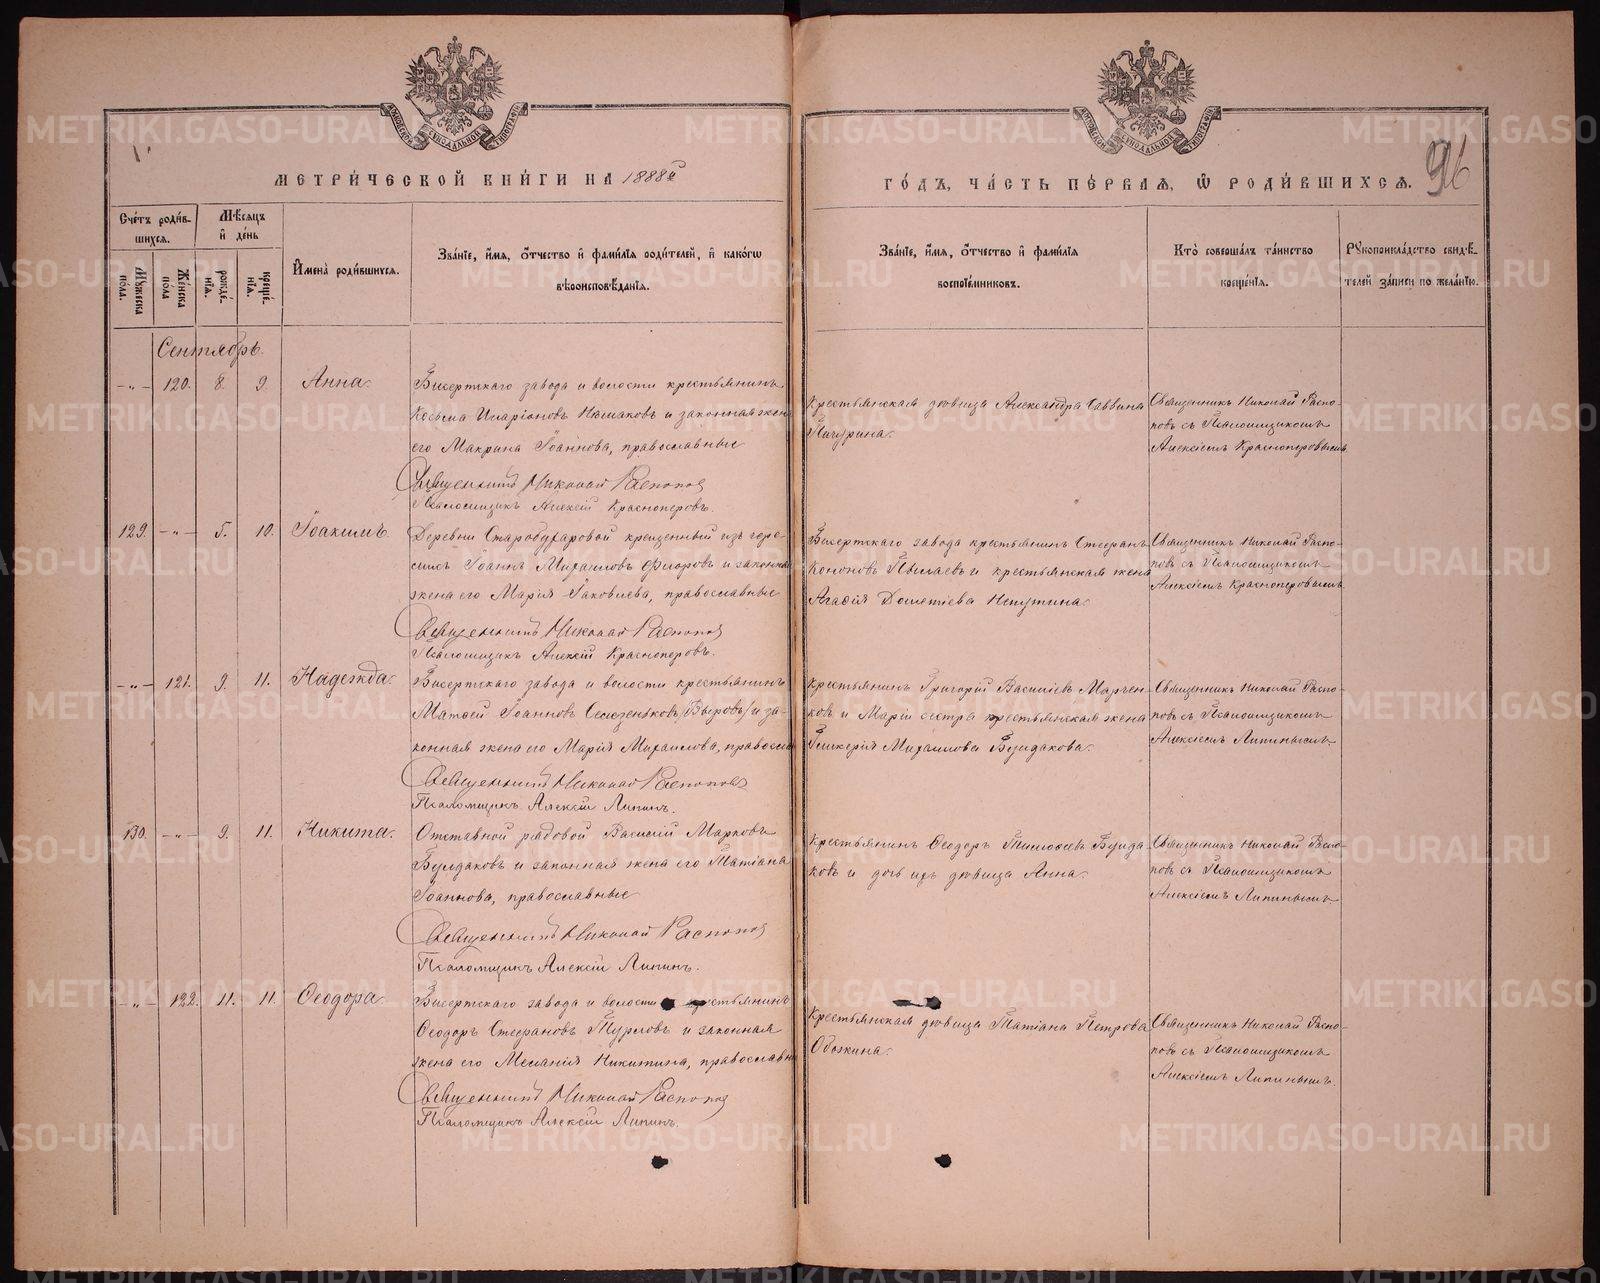 МЕТРИ́ЧЕСКОЙ КНИ́ГИ НА 1888й
ГО́ДЪ, ЧА́СТЬ ПЕ́РВАЯ, Ѡ РОДИ́ВШИХСЯ.
96
Сче́тъ роди́в-
шихся.
Мѣ́сяцъ
и́ де́нь
Му́жеска
по́ла.
Же́нска
по́ла
рожде́-
нїя.
креще́-
нїя.
И́мена̀ роди́вшихся.
Зва́нїе, и́мя, о́тчество и́ фами́лїя роди́телей, и́ како́гѡ
вѣроисповѣ́данїя.
Зва́нїе, и́мя, о́тчество и́ фами́лїя
воспрїе́мниковъ.
Кто̀ соверша́лъ та́инство
креще́нїя.
Рꙋкоприкла́дство свидѣ́-
телей за́писи по жела́нїю.
Сентябрь.
—„— 120. 8. 9. Анна.
Бисертскаго завода и волости крестьянинъ
Косьма Иларіоновъ и законная жена
его Макрина Іоаннова, православные
Священникъ Николай Распоповъ
Псаломщикъ Алексій Красноперовъ.
Крестьянская дѣвица Александра Саввина
Пичурина.
Священникъ Николай Распо-
повъ съ Псаломщикомъ
Алексіемъ Красноперовымъ
129. —„— 5. 10. Іоакимъ.
Деревни Старобухаровой крещенный изъ чере-
мисъ Іоаннъ Михаиловъ Ѳиоровъ и законная
жена его Марія Іаковлева, православные
Священникъ Николай Распоповъ
Псаломщикъ Алексій Красноперовъ.
Бисертскаго завода крестьянинъ Стефанъ
Кононовъ Пылаевъ и крестьянская жена
Агафія Дометіева
Священникъ Николай Распо-
повъ съ Псаломщикомъ
Алексіемъ Красноперовымъ
—„— 121. 9. 11. Надежда.
Бисертскаго завода и волости крестьянинъ
Матѳей Іоанновъ Селезеньковъ /Выровъ/ и за-
конная жена его Марія Михаилова, правосла
Священникъ Николай Распоповъ
Псаломщикъ Алексій Липинъ.
Крестьянинъ Григорій Василіевъ Марген-
ковъ и Маріи сестра крестьянская жена
Гликерія Михаилова Булдакова.
Священникъ Николай Распо-
повъ съ Псаломщикомъ
Алексіемъ Липинымъ
130. —„— 9. 11. Никита.
Отставной рядовой Василій Марковъ
Булдаковъ и законная жена его Татіана
Іоаннова, православные
Священникъ Николай Распоповъ
Псаломщикъ Алексій Липинъ.
Крестьянинъ Ѳеодоръ Тимоѳеевъ Булда
ковъ и дочь ихъ дѣвица Анна.
Священникъ Николай Распо-
повъ съ Псаломщикомъ
Алексіемъ Липинымъ
—„— 122. 11. 11. Ѳеодора.
Бисертскаго завода и волости крестьянинъ
Ѳеодоръ Стефановъ Турловъ и законная
жена его Меланія Никитина, православн
Священникъ Николай Распоповъ
Псаломщикъ Алексій Липинъ.
Крестьянская дѣвица Татіана Петрова
Обожина.
Священникъ Николай Распо-
повъ съ Псаломщикомъ
Алексіемъ Липинымъ.
METRIKI.GASO-URAL.RU